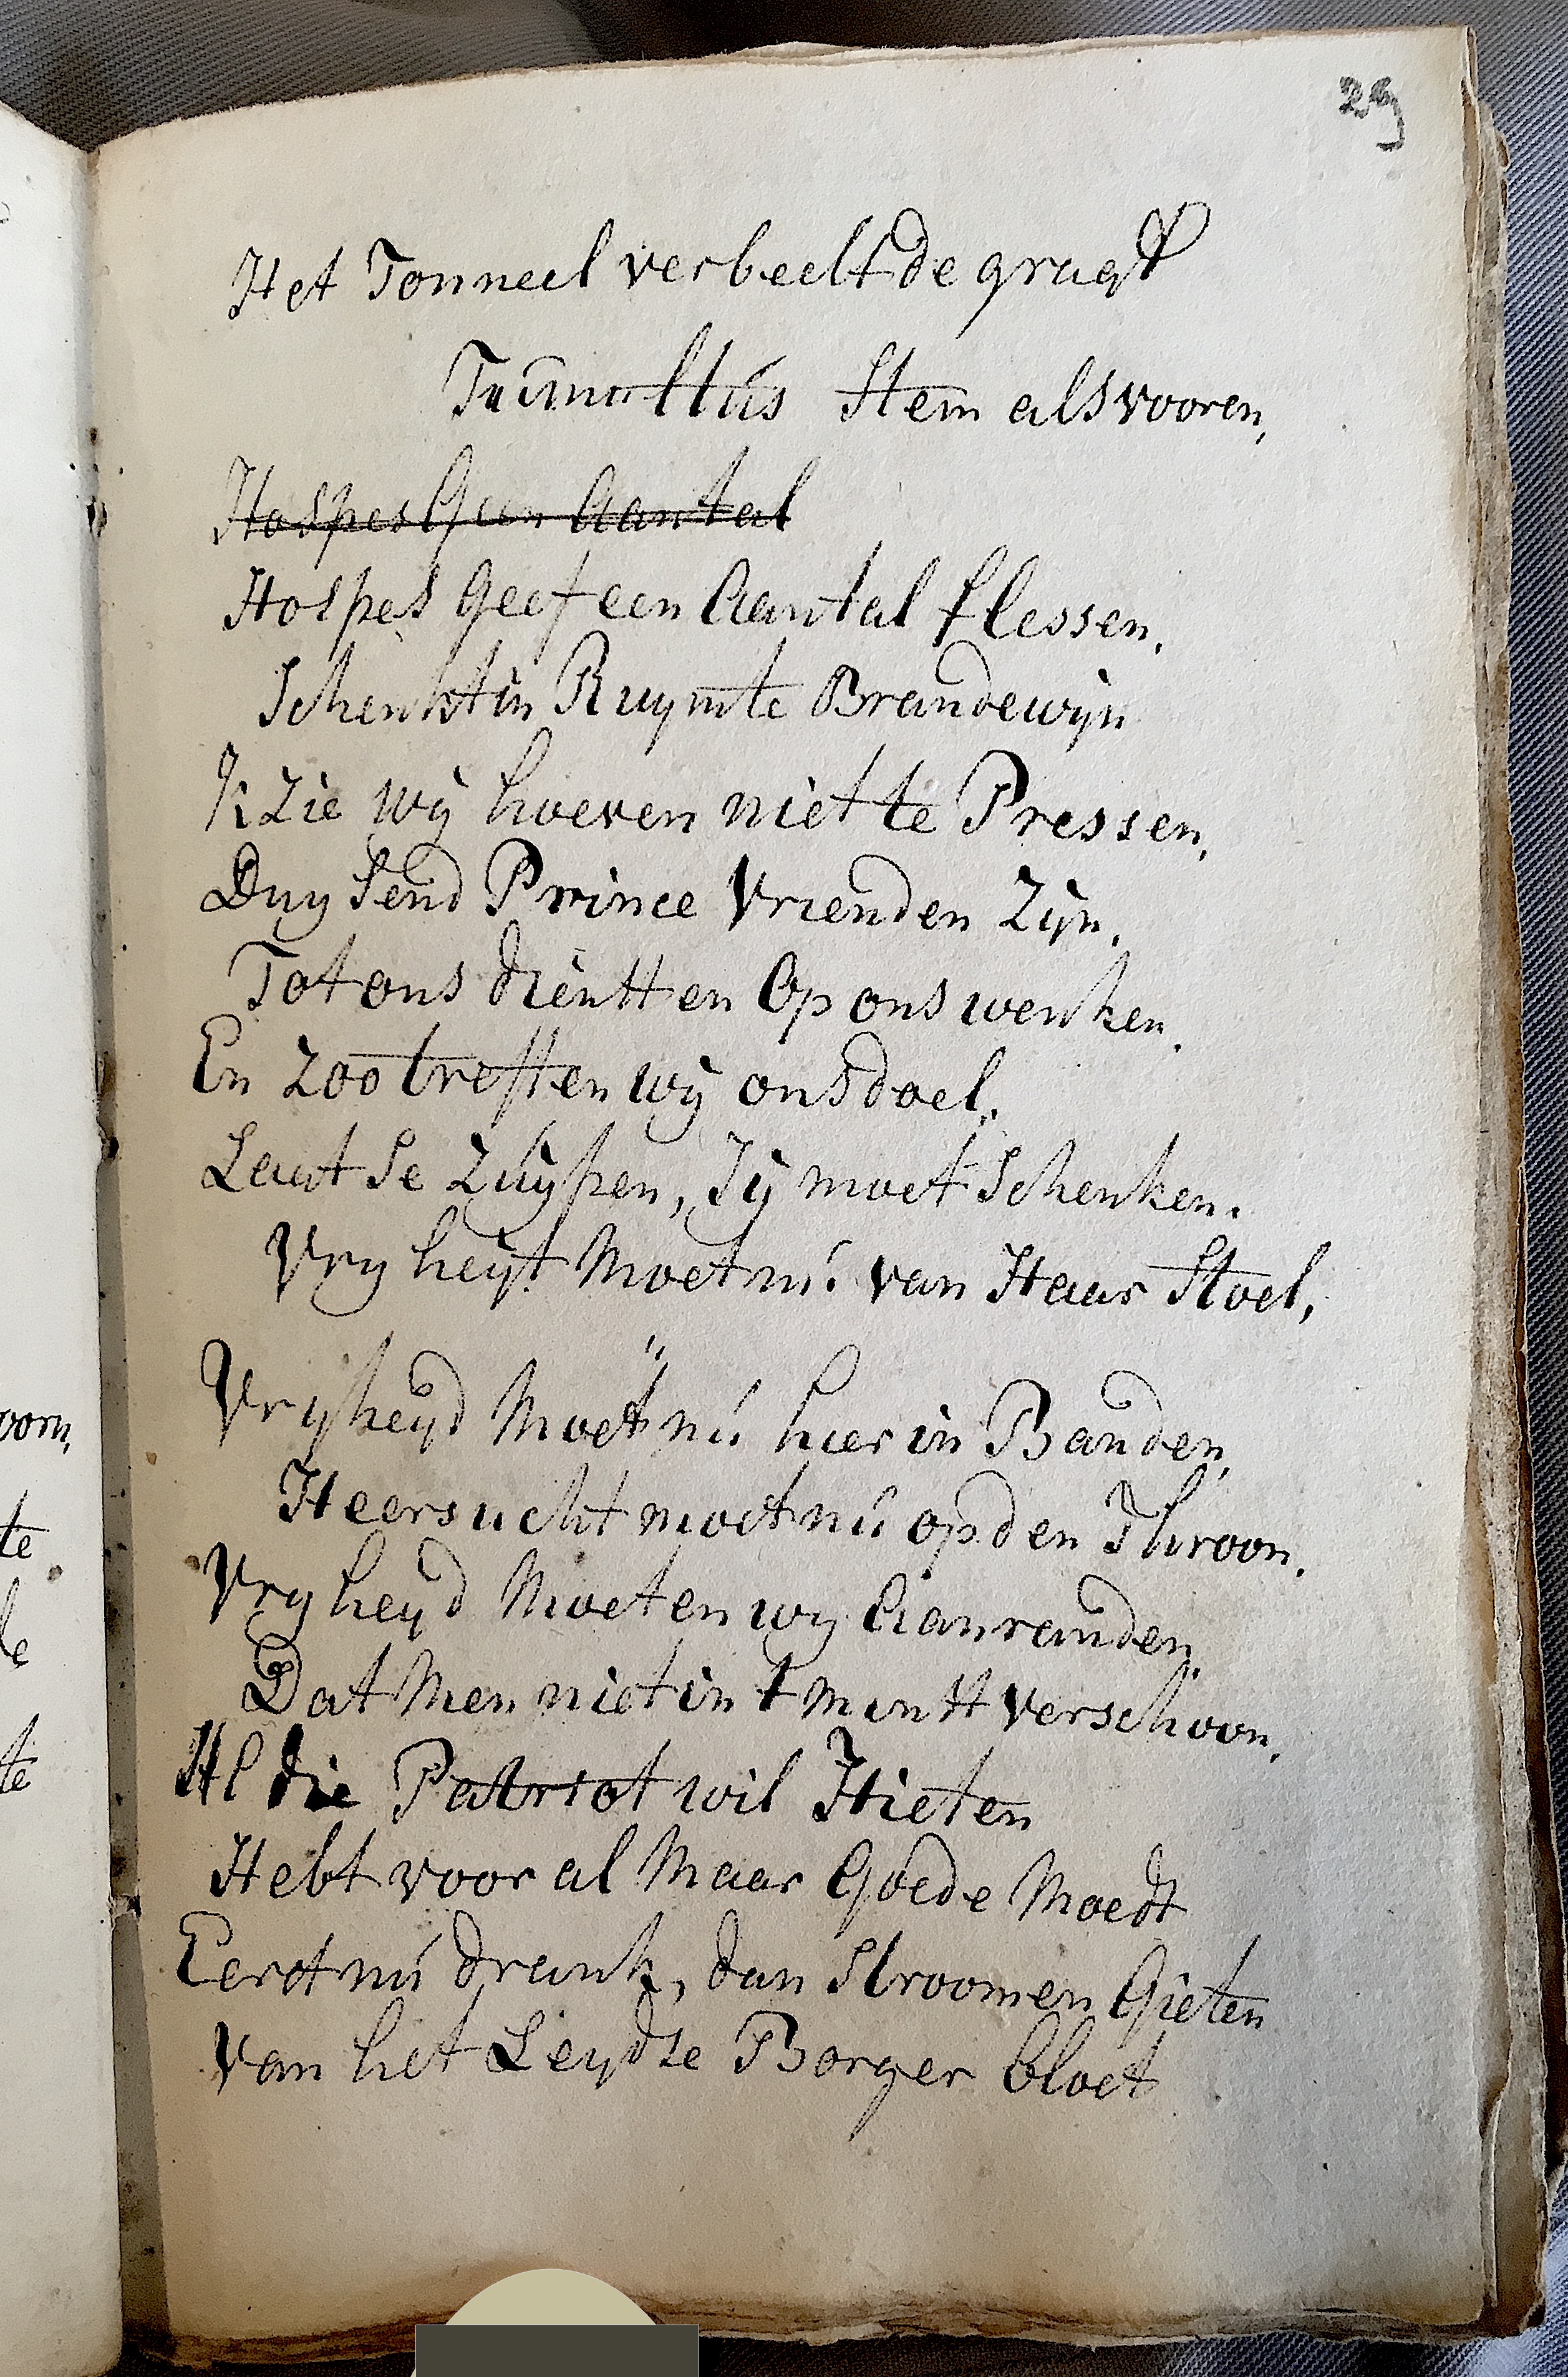 29
Het Tonneel verbeelt de gragt
Tumultus Stem als vooren,
Hospes Geen Aantal
Hospes Geef een Aantal flessen,
Schenkt in Ruymte Brandewijn
K Zie wij hoeven niet te Pressen,
Duysend Prince Vrienden Zijn,
Tot ons dienst en Op ons wenken,
En Zoo treffen wij ons doel,
Laat Se Zuypen, Jij moet Schenken.
Vryheyt Moet nú van Haar Stoel,
Vryheyd Moet nú hier in Banden,
Heersucht moet nú op den Throon,
Vryheyd Moeten wy Aanranden,
Dat Men niet in t minst verschoon,
Al die Patriot wil Hieten
Hebt voor al Maar Goede Moedt
Eerst nú drank, dan Stroomen Gieten
Van het Leydse Borger bloet
oorn,
te
le
te